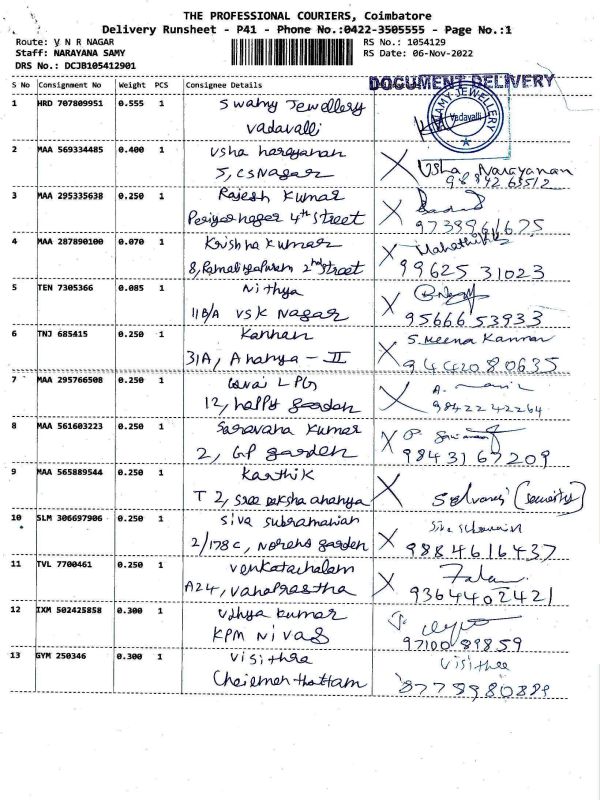 THE PROFESSIONAL COURIERS, Coimbatore
Delivery Runsheet - P41 - Phone No.:0422-3505555 - Page No.:1
Route: V N R NAGAR
RS No.: 1054129
Staff: NARAYANA SAMY
RS Date: 06-Nov-2022
DRS No.: DCJB105412901
DOCUMENT DELIVERY
S No Consignment No Weight PCS Consignee Details
1 HRD 707809951 0.555 1 Swamy Jewellery
Vadavalli
SWAMY JEWELLERY
Vadavalli
2 MAA 569334485 0.400 1 Usha narayanan
5, CS Nagar
Usha Narayanan
98842 65512
3 MAA 295335638 0.250 1 Rajesh Kumar
Periyar nagar 4th street
9739961675
4 MAA 287890100 0.070 1 Krishna kumar
8, Ramalingapuram 2nd street
99625 31023
5 TEN 7305366 0.085 1 Nithya
11B/A VSK Nagar
9566653933
6 TNJ 685415 0.250 1 Kannan
31A, Ananya - II
S. Meena Kannan
9442080635
7 MAA 295766508 0.250 1 Kovai LPG
12, happy garden
9842242264
8 MAA 561603223 0.250 1 Saravana Kumar
2, GP garden
9843167209
9 MAA 565889544 0.250 1 Karthik
T 2, Sree daksha ananya
Selvaraj (security)
10 SLM 306697906 0.250 1 Siva Subramanian
2/178c, Narens garden
9884616437
11 TVL 7700461 0.250 1 Venkatachalam
A24, Vanaprastha
9364402421
12 IXM 502425858 0.300 1 Vidhya kumar
KPM Nivas
97100 89859
13 GYM 250346 0.300 1 Visithra
Chairman thottam
8778980889